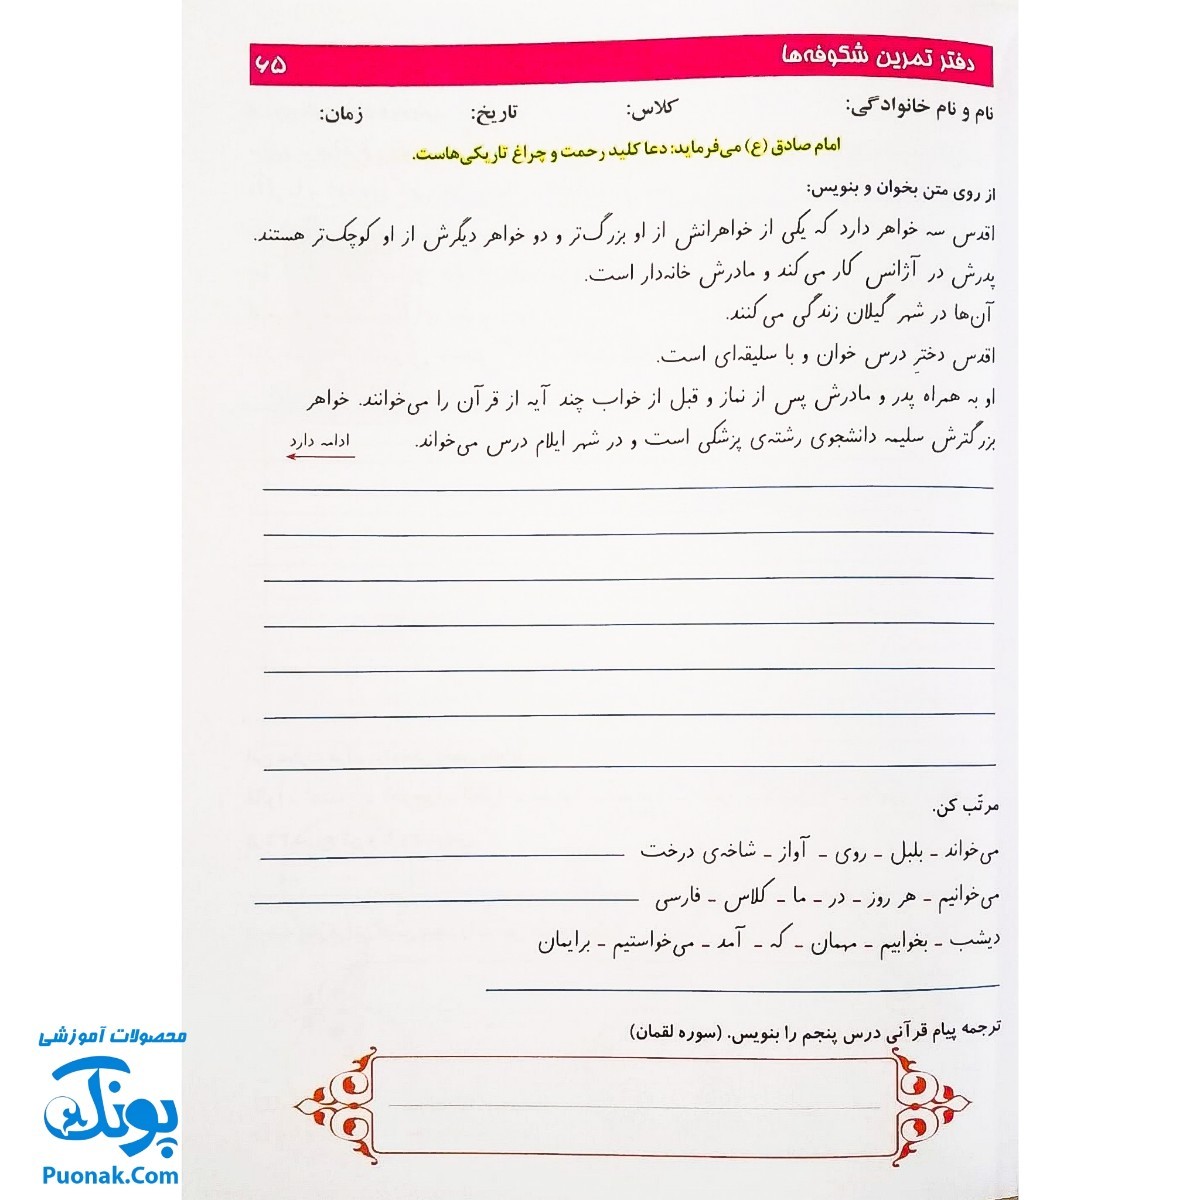 دفتر تمرین شکوفه‌ها ۶۵
نام و نام خانوادگی: کلاس: تاریخ: زمان:
امام صادق (ع) می‌فرماید: دعا کلید رحمت و چراغ تاریکی‌هاست.
از روی متن بخوان و بنویس:
اقدس سه خواهر دارد که یکی از خواهرانش از او بزرگ‌تر و دو خواهر دیگرش از او کوچک‌تر هستند.
پدرش در آژانس کار می‌کند و مادرش خانه‌دار است.
آن‌ها در شهر گیلان زندگی می‌کنند.
اقدس دخترِ درس خوان و با سلیقه‌ای است.
او به همراه پدر و مادرش پس از نماز و قبل از خواب چند آیه از قرآن را می‌خوانند. خواهر
بزرگترش سلیمه دانشجوی رشته‌ی پزشکی است و در شهر ایلام درس می‌خواند. ادامه دارد
مرتّب کن.
می‌خواند - بلبل - روی - آواز - شاخه‌ی درخت
می‌خوانیم - هر روز - در - ما - کلاس - فارسی
دیشب - بخوابیم - مهمان - که - آمد - می‌خواستیم - برایمان
ترجمه پیام قرآنی درس پنجم را بنویس. (سوره لقمان)
محصولات آموزشی
پونک
Puonak.Com